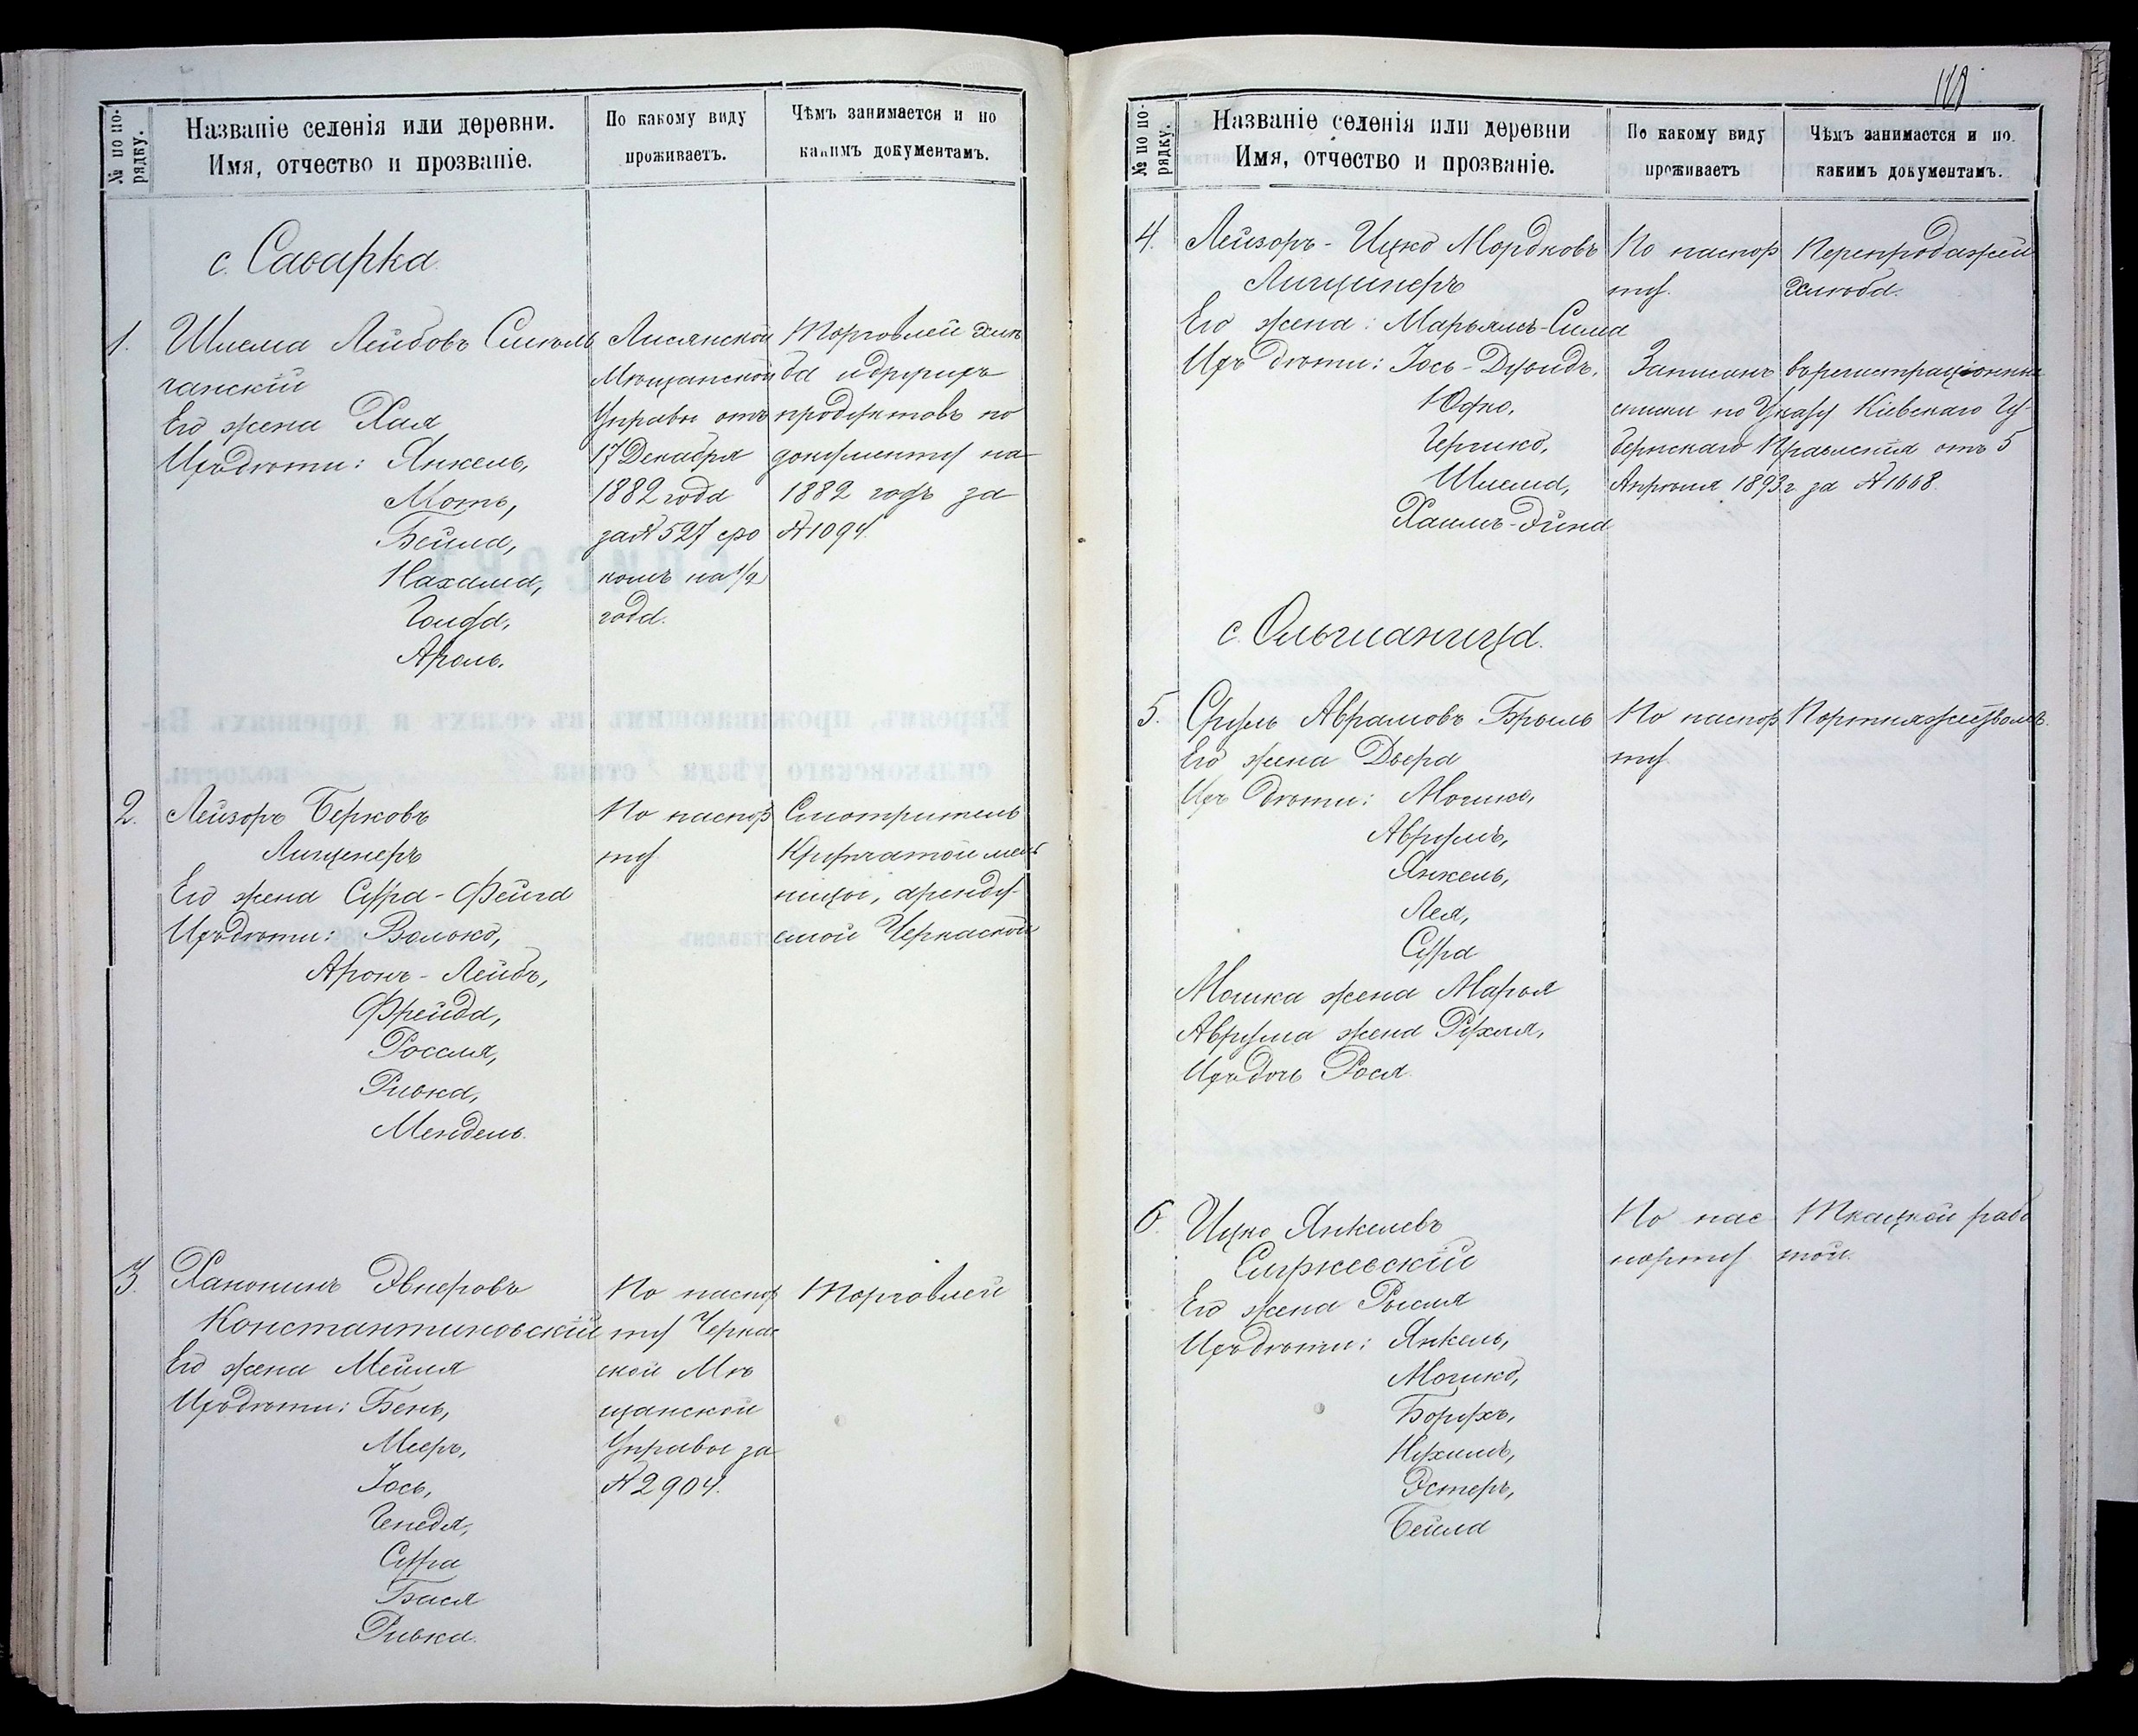 № по по-
рядку.
Названіе селенія или деревни.
Имя, отчество и прозваніе.
По какому виду
проживаетъ.
Чѣмъ занимается и по
какимъ документамъ.
с. Саварка
1. Шлема Лейбовъ Смѣль
чанскій
Его жена Хая
Ихъ дѣти: Янкель,
Моть,
Бейла,
Нахама,
Голда,
Аронъ.
Лисянской
Мѣщанской
Управы отъ
17 Декабря
1882 года
за № 527 сро
комъ на 1/2
года.
Торговлей хлѣ
ба и другихъ
продуктовъ по
документу на
1882 годъ за
№ 1094.
2. Лейзоръ Берковъ
Лищинеръ
Его жена Сура-Фейга
Ихъ дѣти: Волько,
Аронъ-Лейбъ,
Фрейда,
Россля,
Ривка,
Мендель.
По паспор
ту
Смотритель
Крупчатой мель
ницы, аренду
емой Черкаской
3. Ханонинъ Эвнеровъ
Константиновскій
Его жена Мейля
Ихъ дѣти: Бень,
Мееръ,
Іось,
Генедя,
Сура
Бася
Ривка.
По паспор
ту Черкас
ской Мѣ
щанской
Управы за
№ 2904.
Торговлей
№ по по-
рядку.
Названіе селенія или деревни
Имя, отчество и прозваніе.
По какому виду
проживаетъ
Чѣмъ занимается и по
какимъ документамъ.
4. Лейзоръ-Ицко Мордковъ
Лищинеръ
Его жена: Марьямъ-Сима
Ихъ дѣти: Іось-Дувидъ,
Юдко,
Гершко,
Шлема,
Хаимъ-Дина
По паспор
ту.
Перепродажей
хлѣба.
Записанъ въ регистраціонные
списки по Указу Кіевскаго Гу-
бернскаго Правленія отъ 5
Апрѣля 1893 г за № 1668.
с. Ольшаница.
5. Сруль Абрамовъ Брыль
Его жена Двера
Ихъ дѣти: Мошко,
Аврумъ,
Янкель,
Лея,
Сура
Мошка жена Марья
Аврума жена Рухля,
Ихъ дочь Рося.
По паспор
ту.
6. Ицко Янкелевъ
Его жена Рысля
Ихъ дѣти: Янкель,
Мошко,
Борухъ,
Нухимъ,
Эстеръ,
Бейла
По пас
порту
Ткацкой рабо
той.